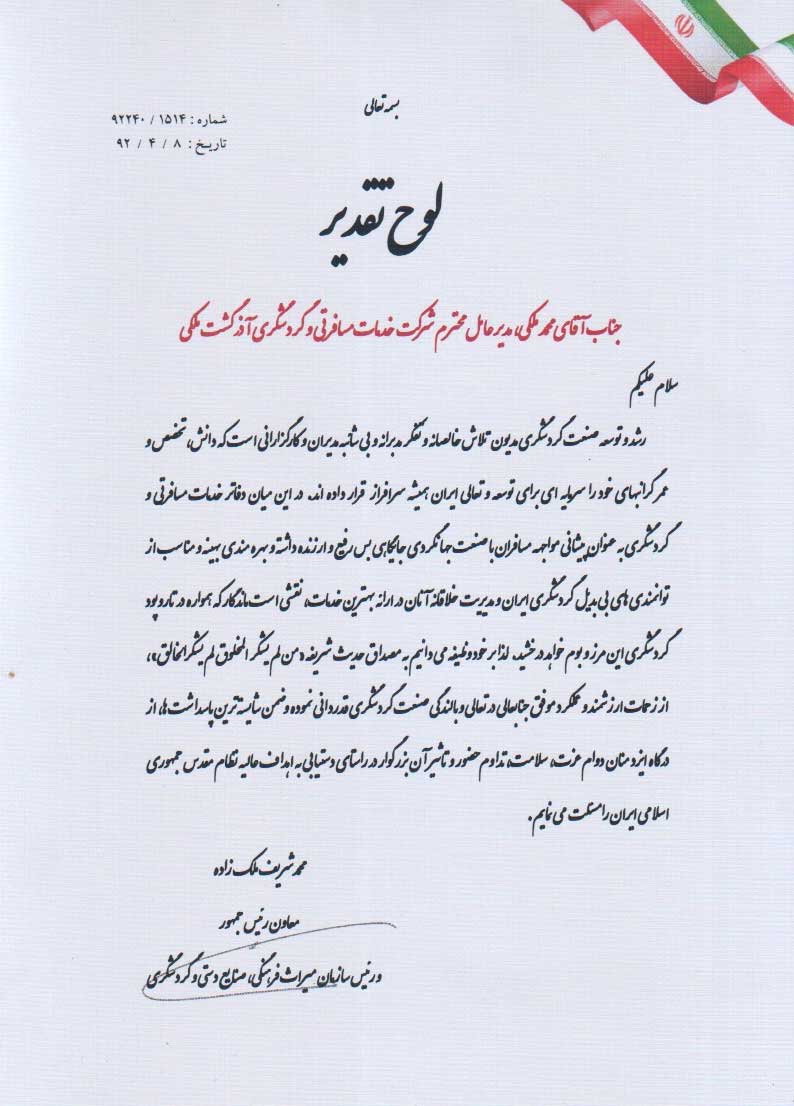 بسمه تعالی
شماره : ۱۵۱۴ / ۹۲۲۴۰
تاریخ : ۸ / ۴ / ۹۲
لوح تقدیر
جناب آقای محمد ملکی، مدیر عامل محترم شرکت خدمات مسافرتی و گردشگری آذر گشت ملکی
سلام علیکم
رشد و توسعه صنعت گردشگری مدیون تلاش خالصانه و تفکر مدبرانه و بی شائبه مدیران و کارگزارانی است که دانش، تخصص و
عمر گرانبهای خود را سرمایه ای برای توسعه و تعالی ایران همیشه سرافراز قرار داده اند. در این میان دفاتر خدمات مسافرتی و
گردشگری به عنوان پیشانی مواجهه مسافران با صنعت جهانگردی جایگاهی بس رفیع و ارزنده داشته و بهره مندی بهینه و مناسب از
توانمندی های بی بدیل گردشگری ایران و مدیریت خلاقانه آنان در ارائه بهترین خدمات، نقشی است ماندگار که همواره در تار و پود
گردشگری این مرز و بوم خواهد درخشید. لذا بر خود وظیفه می دانیم به مصداق حدیث شریفه «من لم یشکر المخلوق لم یشکر الخالق»،
از زحمات ارزشمند و عملکرد موفق جنابعالی در تعالی و بالندگی صنعت گردشگری قدردانی نموده و ضمن شایسته ترین پاسداشت ها، از
درگاه ایزد منان دوام عزت، سلامت، تداوم حضور و تاثیر آن بزرگوار در راستای دستیابی به اهداف عالیه نظام مقدس جمهوری
اسلامی ایران را مسئلت می نمایم.
محمد شریف ملک زاده
معاون رئیس جمهور
و رئیس سازمان میراث فرهنگی، صنایع دستی و گردشگری